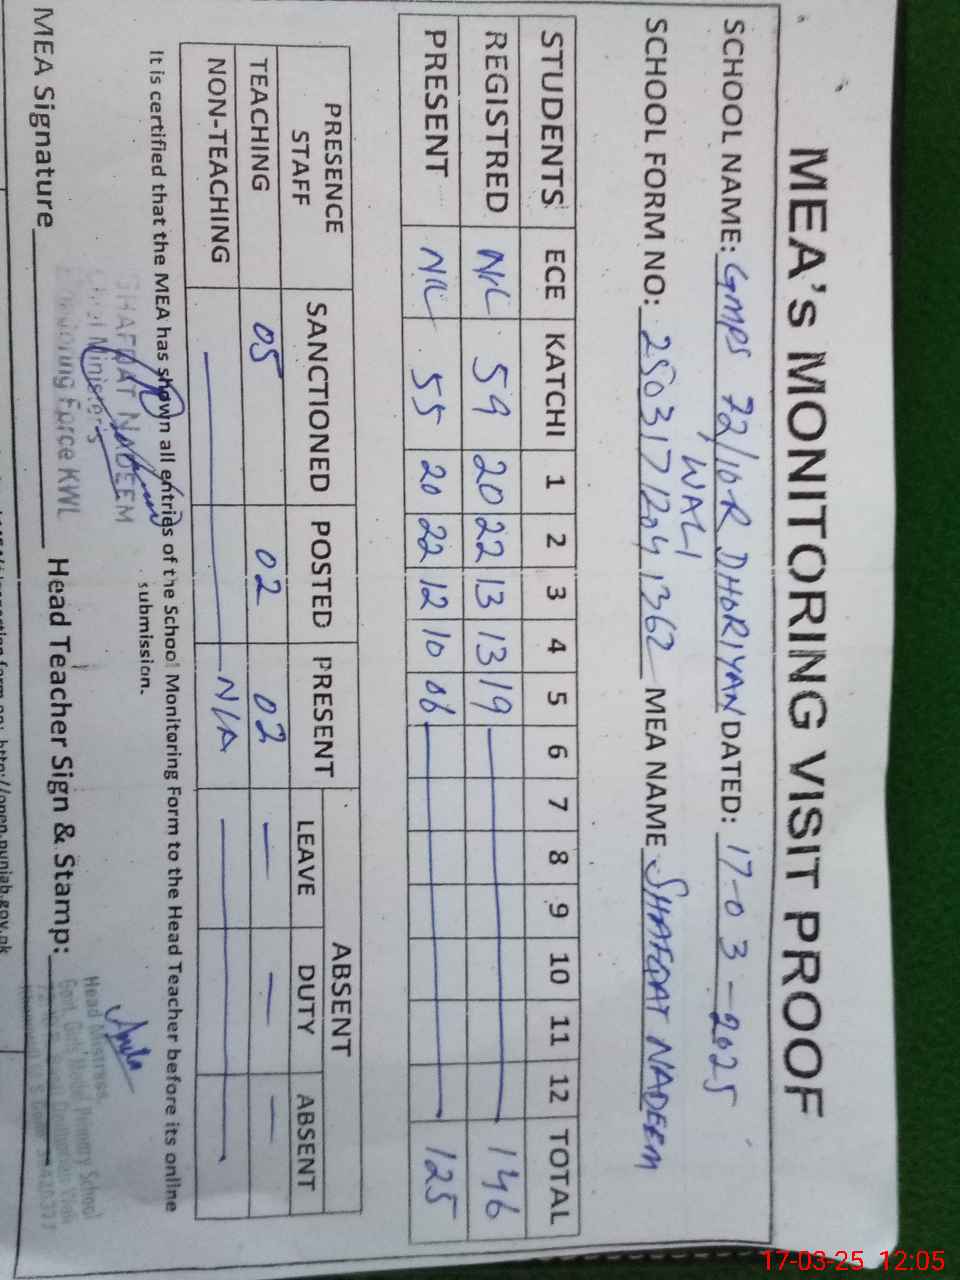 MEA's MONITORING VISIT PROOF
SCHOOL NAME: GMPS 72/10-R DHORIYAN DATED: 17-03-2025
WALI
SCHOOL FORM NO: 2503171204 1362 MEA NAME SHAFQAT NADEEM
STUDENTS ECE KATCHI 1 2 3 4 5 6 7 8 9 10 11 12 TOTAL
REGISTRED NIL 59 20 22 13 13 19 146
PRESENT NIL 55 20 22 12 10 06 125
PRESENCE STAFF SANCTIONED POSTED PRESENT ABSENT
LEAVE DUTY ABSENT
TEACHING 05 02 02 — — —
NON-TEACHING N/A
It is certified that the MEA has shown all entries of the School Monitoring Form to the Head Teacher before its online
submission.
SHAFQAT NADEEM
Chief Minister's
Monitoring Force KWL
MEA Signature Head Teacher Sign & Stamp:
Head Mistress,
Govt. Girls Model Primary School
http://open.punjab.gov.pk
17-03-25 12:05